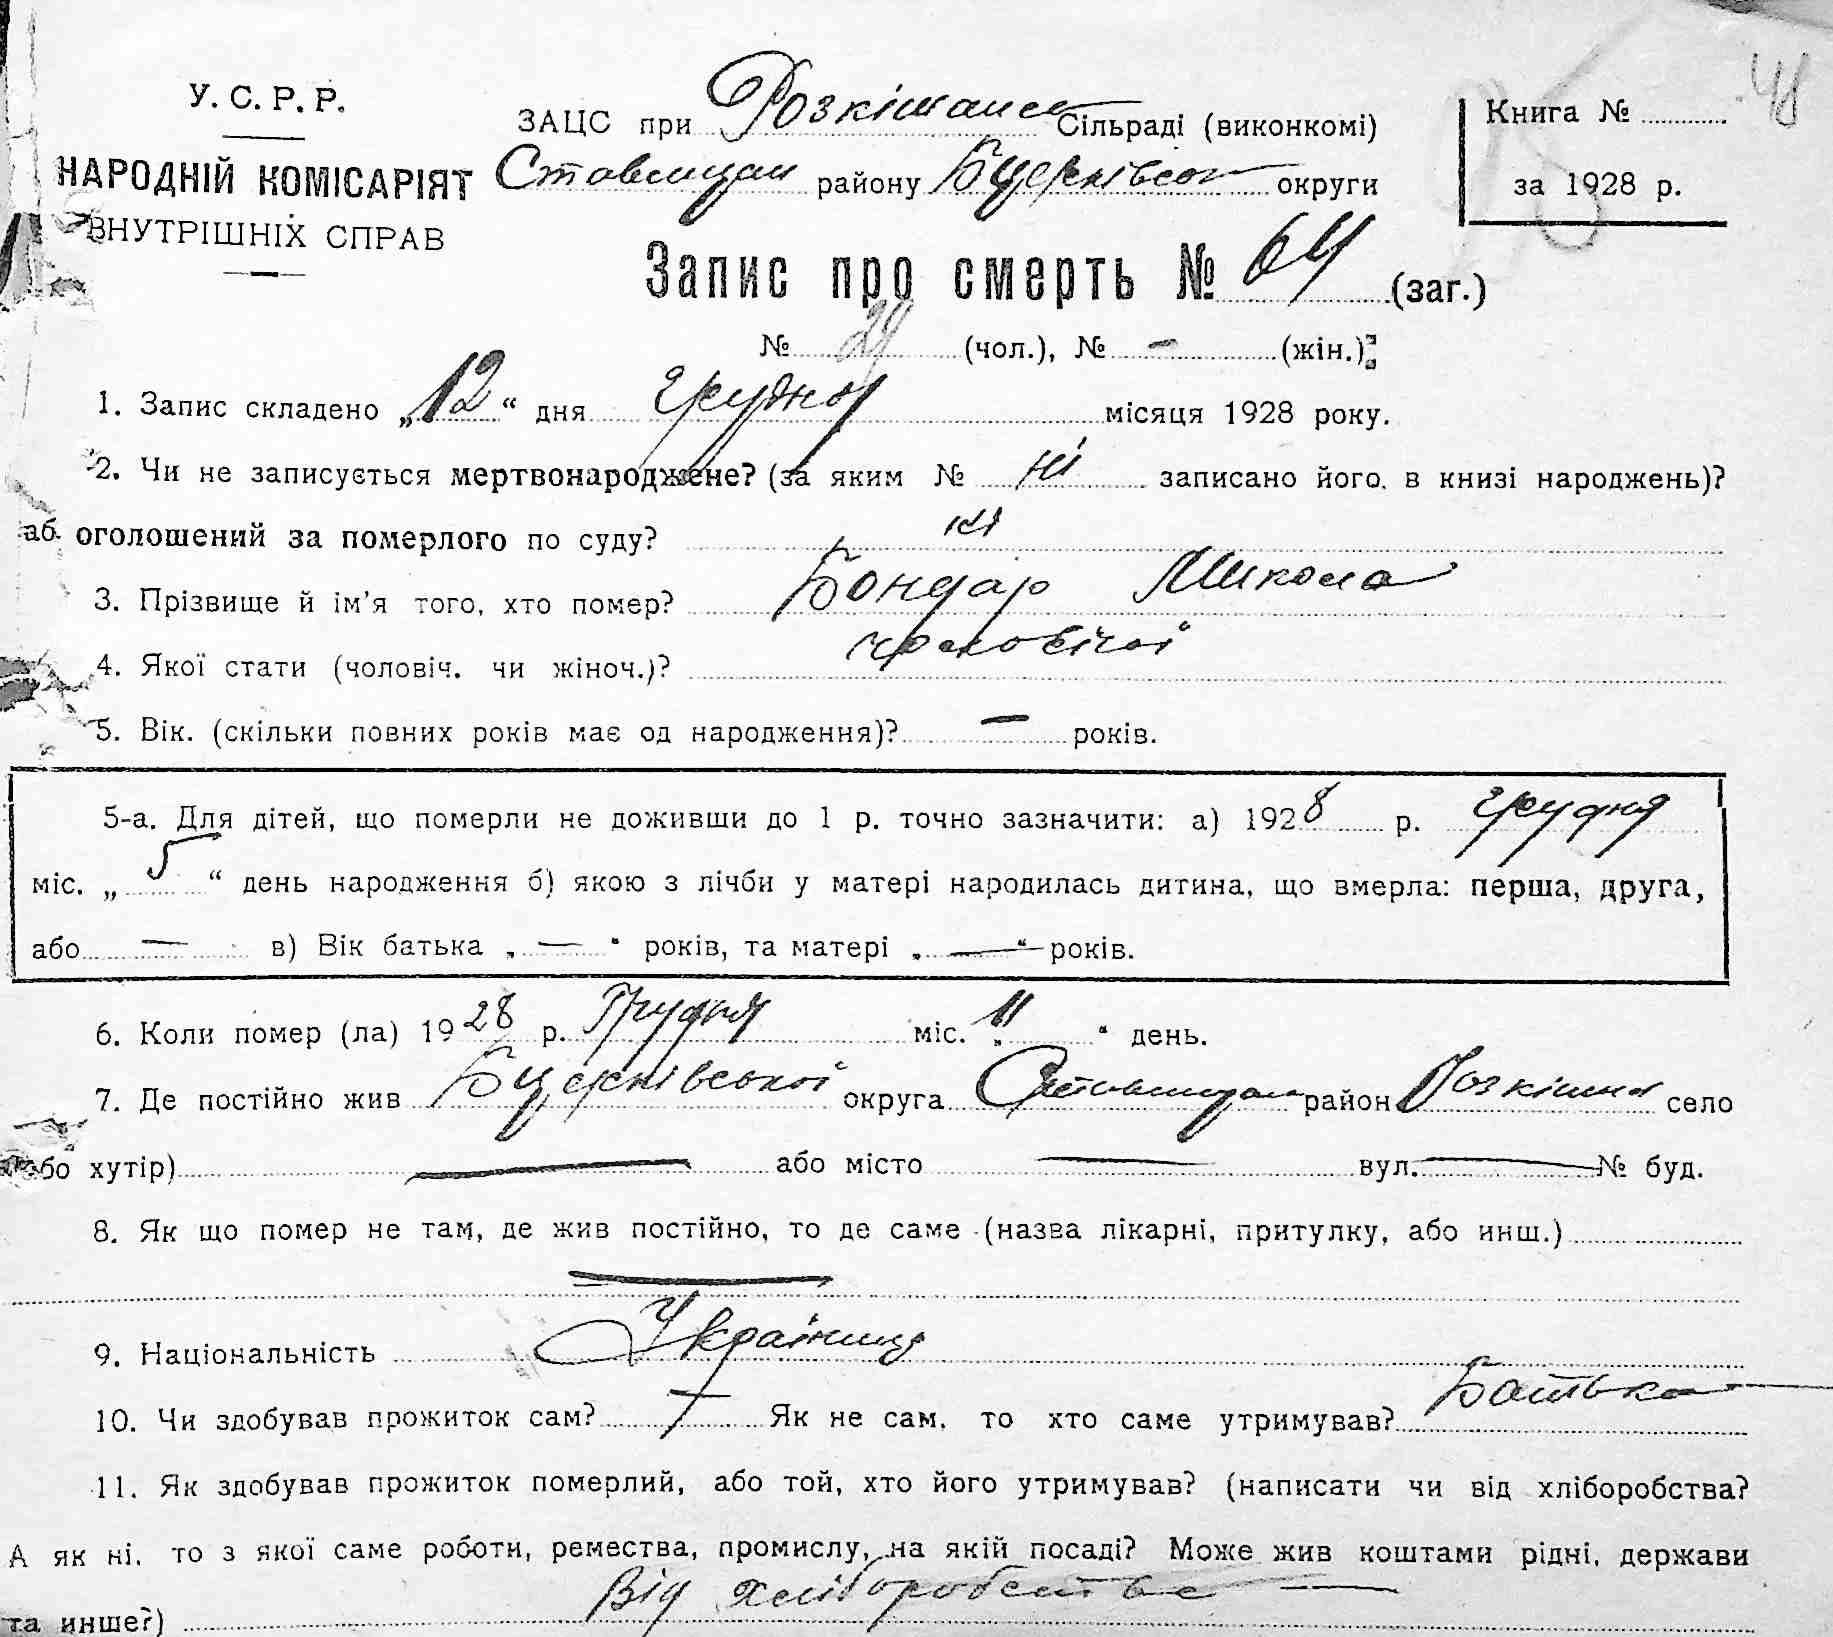 48
У. С. Р. Р.
НАРОДНІЙ КОМІСАРІЯТ
ВНУТРІШНІХ СПРАВ
ЗАЦС при Розкішнанск Сільраді (виконкомі)
Ставищан району Бцерківськ округи
Книга №
за 1928 р.
Запис про смерть № 64 (заг.)
№ 29 (чол.), № — (жін.)
1. Запис складено „12“ дня грудня місяця 1928 року.
2. Чи не записується мертвонароджене? (за яким № ні записано його в книзі народжень)?
аб оголошений за померлого по суду? ні
3. Прізвище й ім'я того, хто помер? Бондар Микола
4. Якої стати (чоловіч. чи жіноч.)? чоловічої
5. Вік. (скільки повних років має од народження)? — років.
5-а. Для дітей, що померли не доживши до 1 р. точно зазначити: а) 1928 р. грудня
міс. „5“ день народження б) якою з лічби у матері народилась дитина, що вмерла: перша, друга,
або — в) Вік батька „—“ років, та матері „—“ років.
6. Коли помер (ла) 1928 р. Грудня міс. „11“ день.
7. Де постійно жив Бцерківської округа Ставищан район Розкішна село
бо хутір) — або місто — вул. — № буд.
8. Як що помер не там, де жив постійно, то де саме (назва лікарні, притулку, або инш.)
—
9. Національність Українець
10. Чи здобував прожиток сам? Як не сам, то хто саме утримував? Батько
11. Як здобував прожиток померлий, або той, хто його утримував? (написати чи від хліборобства?
А як ні, то з якої саме роботи, ремества, промислу, на якій посаді? Може жив коштами рідні, держави
та инше?) Від хліборобства —